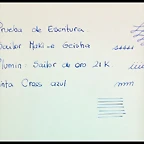 Prueba de Escritura.
Sailor Maki-e Geisha
Plumin: Sailor de oro 21K
Tinta Cross azul